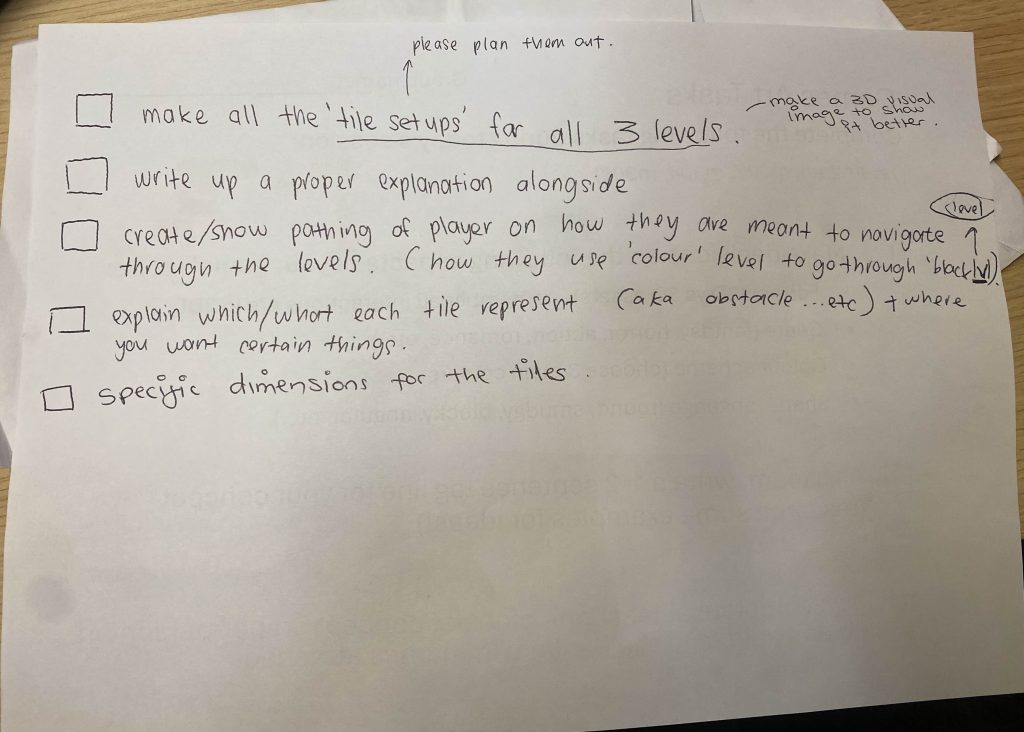 please plan them out.
make all the 'tile setups' for all 3 levels.
make a 3D visual
image to show
pt better.
write up a proper explanation alongside
(level)
create/show pathing of player on how they are meant to navigate
through the levels. (how they use 'colour' level to go through 'black lvl).
explain which/what each tile represent (aka obstacle...etc) + where
you want certain things.
specific dimensions for the tiles.